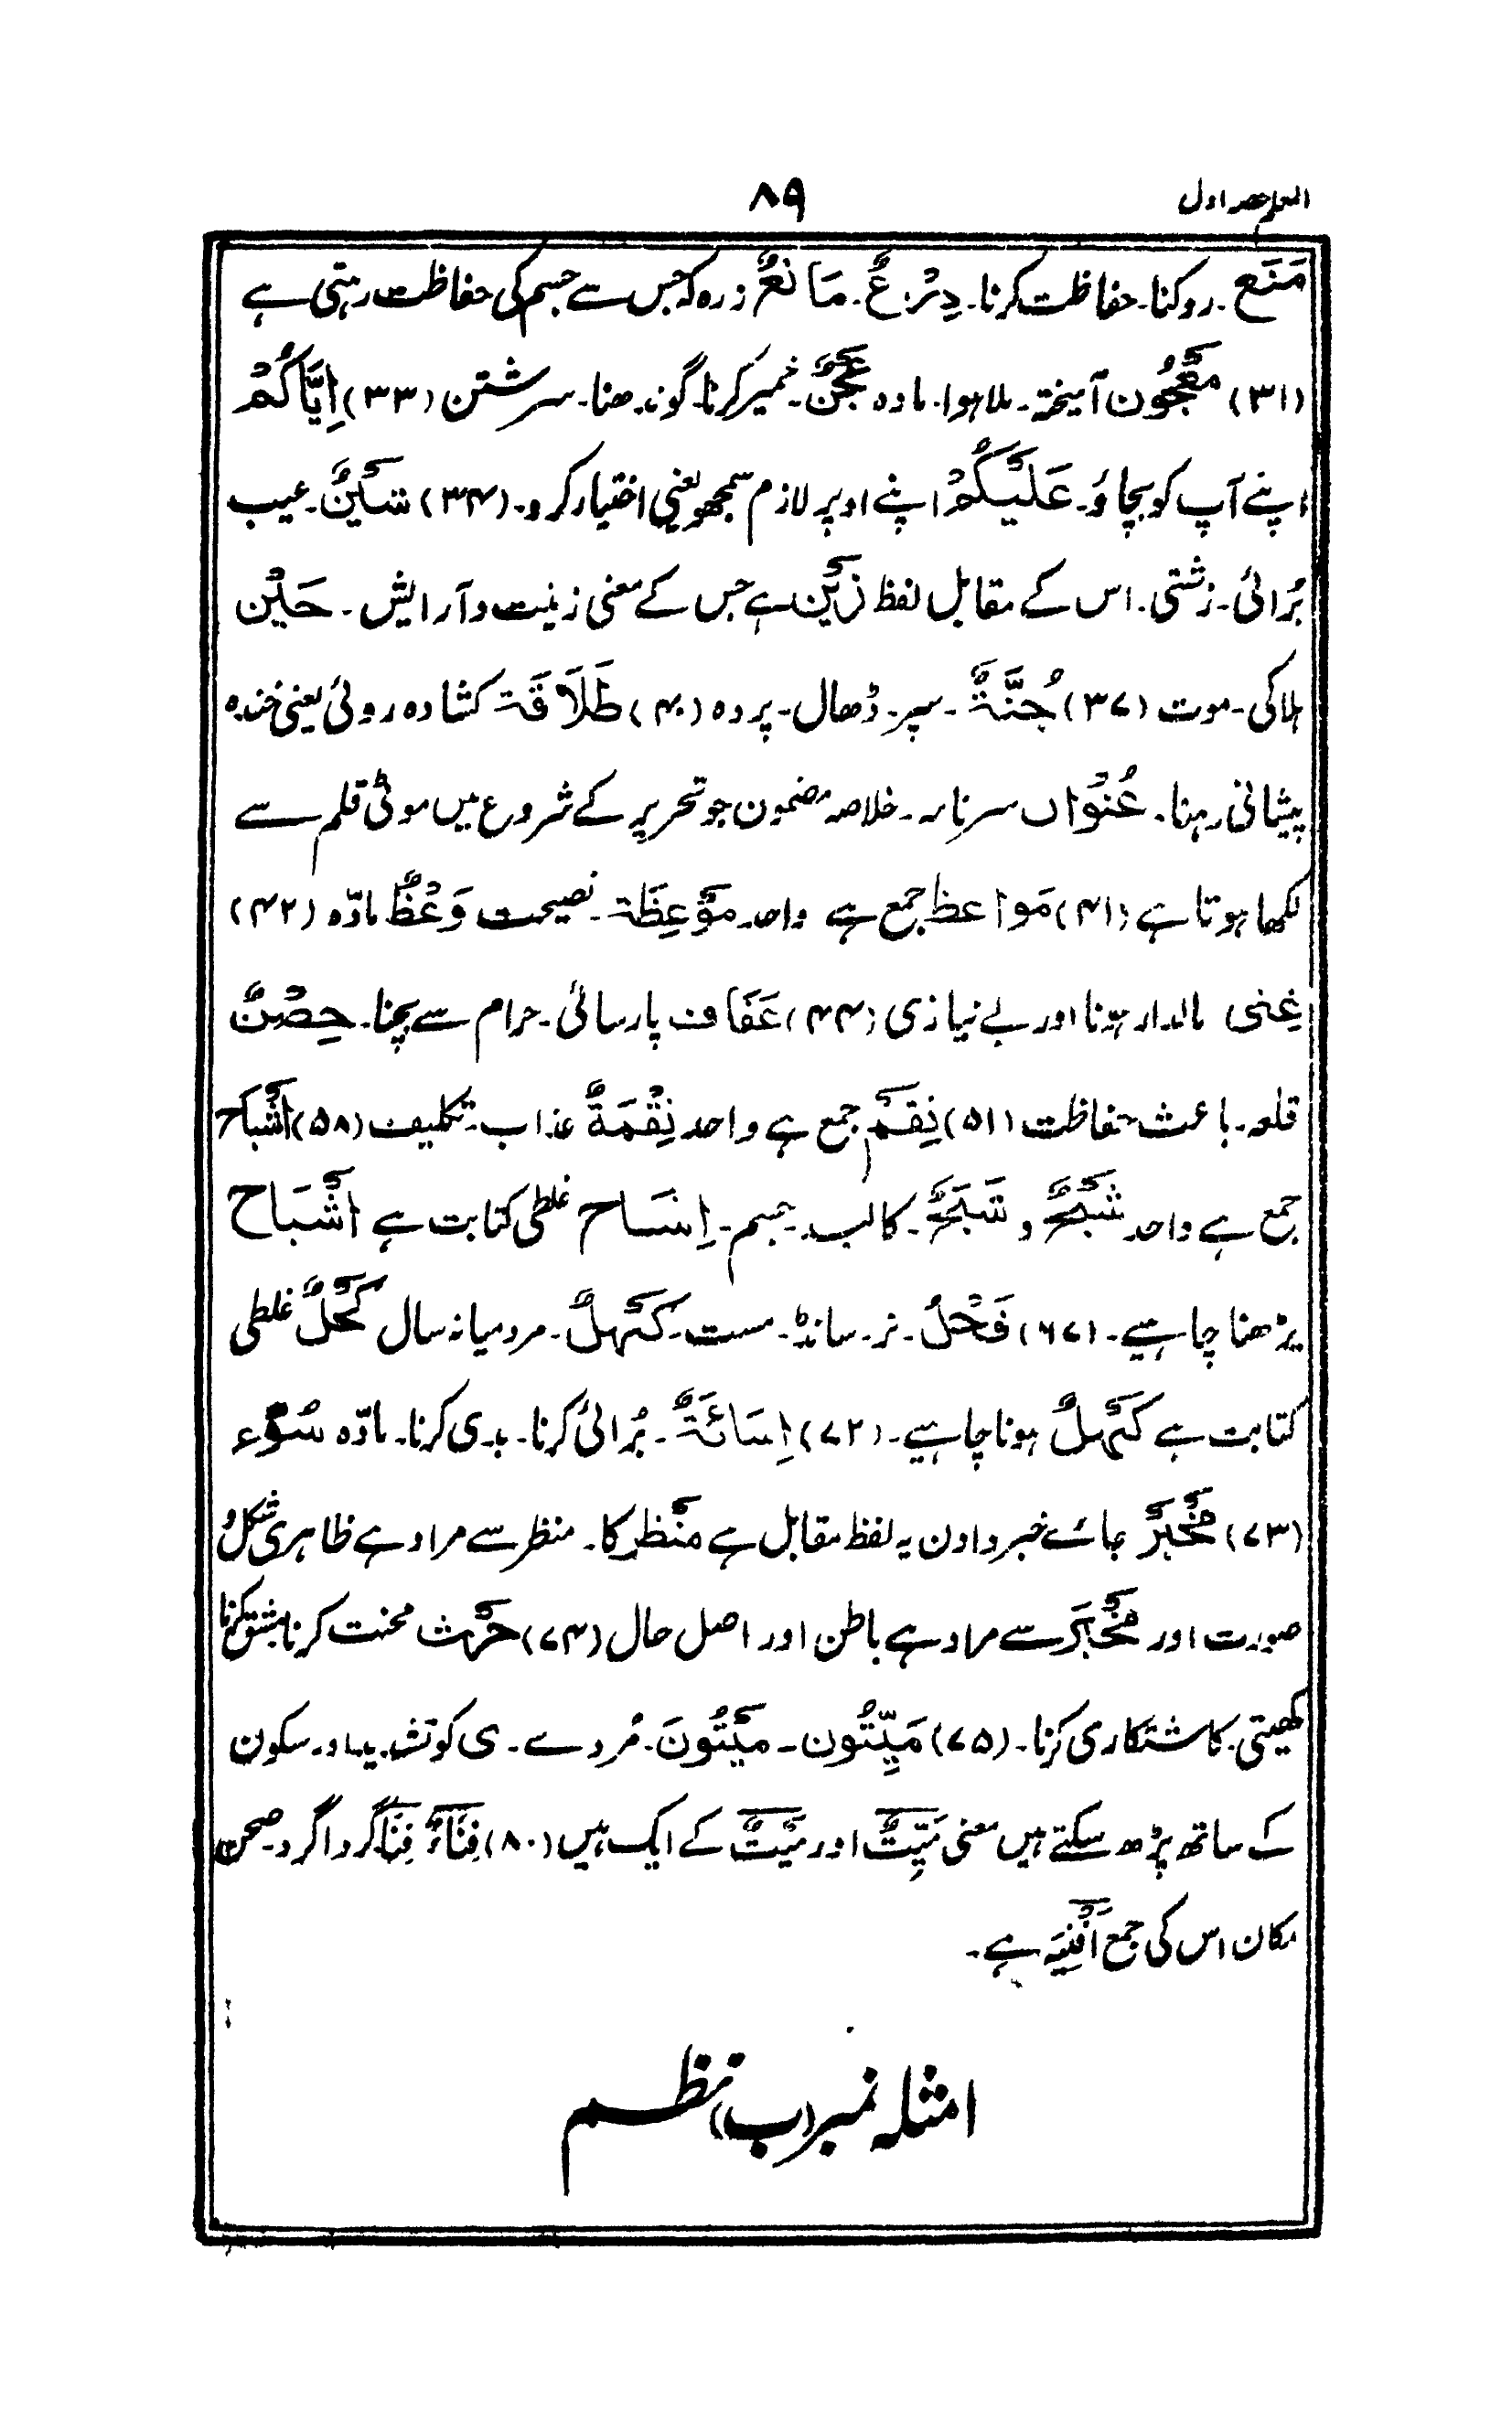 المعلم حصہ اول
۸۹
مَنَع۔ روکنا۔ حفاظت کرنا۔ دِرْعٌ۔ مَانِعٌ زرہ کہ جس سے جسم کی حفاظت رہتی ہے
(۳۱) مَعْجُون آمیختہ۔ ملا ہوا۔ مادہ عَجْنٌ۔ خمیر کرنا۔ گوندھنا۔ سرشتن (۳۳) اِیَّاکُمْ
اپنے آپ کو بچاؤ۔ عَلَیْکُمْ اپنے اوپر لازم سمجھو یعنی اختیار کرو۔ (۳۴) شَیْنٌ۔ عیب
بُرائی۔ زشتی۔ اس کے مقابل لفظ زَیْن ہے جس کے معنی زینت و آرایش۔ حَیْن
ہلاکی۔ موت (۳۷) جُنَّةٌ۔ سپر۔ ڈھال۔ پردہ (۴۰) طَلَاقَة کشادہ روئی یعنی خندہ
پیشانی رہنا۔ عُنْوَاں سرنامہ۔ خلاصہ مضمون جو تحریر کے شروع میں موٹی قلم سے
لکھا ہوتا ہے (۴۱) مَواعظ جمع ہے واحد مَوْعِظَة۔ نصیحت وَعْظٌ مادّہ (۴۲)
غِنی مالدار ہونا اور بے نیازی (۴۴) عَفَاف پارسائی۔ حرام سے بچنا۔ حِصْنٌ
قلعہ۔ باعث حفاظت (۵۱) نِقَم جمع ہے واحد نِقْمَةٌ عذاب۔ تکلیف (۵۸) اَشْبَاح
جمع ہے واحد شَبْحٌ و شَبَحٌ۔ کالبد۔ جسم۔ اِسَاح غلطی کتابت ہے اَشْبَاح
پڑھنا چاہیے۔ (۶۷) فَحْلٌ۔ نر۔ سانڈ۔ مست۔ کَہْلٌ۔ مرد میانہ سال کَحْلٌ غلطی
کتابت ہے کَہْلٌ ہونا چاہیے۔ (۷۲) اِسَائَةٌ۔ بُرائی کرنا۔ بدی کرنا۔ مادّہ سُوْء
(۷۳) مَخْبَرٌ جائے خبر دادن یہ لفظ مقابل ہے مَنْظر کا۔ منظر سے مراد ہے ظاہری شکل و
صورت اور مَخْبَر سے مراد ہے باطن اور اصل حال (۷۴) حَرْث محنت کرنا مشق کرنا
کھیتی۔ کاشتکاری کرنا۔ (۷۵) مَیِّتُون۔ مَیْتُونَ۔ مُردے۔ ی کو تشدید اور سکون
کے ساتھ پڑھ سکتے ہیں معنی مَیِّتٌ اور مَیْتٌ کے ایک ہیں (۸۰) فِنَاءٌ فِنَا گرداگرد۔ صحن
مکان اس کی جمع اَفْنِیَہ ہے۔
امثلہ نمبر (ب) نظم